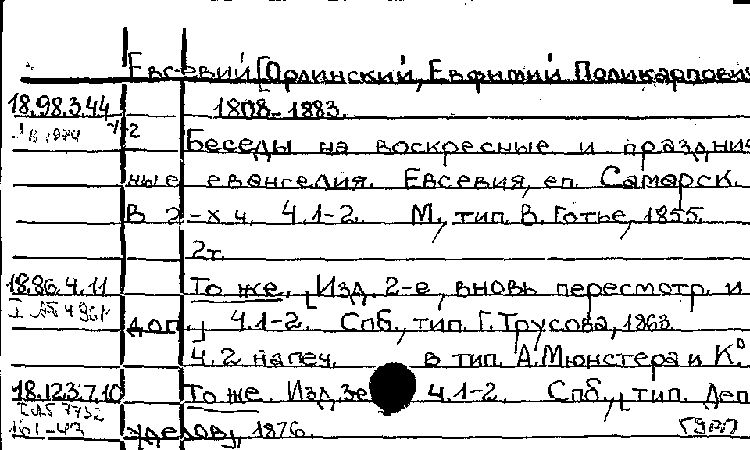 Евсевий [Орлинский, Евфимий Поликарпови
18.98.3.44 1808-1883.
Беседы на воскресные и праздни
ные евангелия. Евсевия, еп. Самарск.
В 2-х ч. Ч.1-2. М., тип. В. Готье, 1855.
2т.
18.86.4.11 То же. [Изд. 2-е, вновь пересмотр. и
доп.] Ч.1-2. Спб., тип. Г. Трусова, 1863.
Ч.2 напеч. в тип. А. Мюнстера и К°.
18.123.7.10 То же. Изд. 3е Ч.1-2. Спб., [тип. Деп.
уделов], 1876.